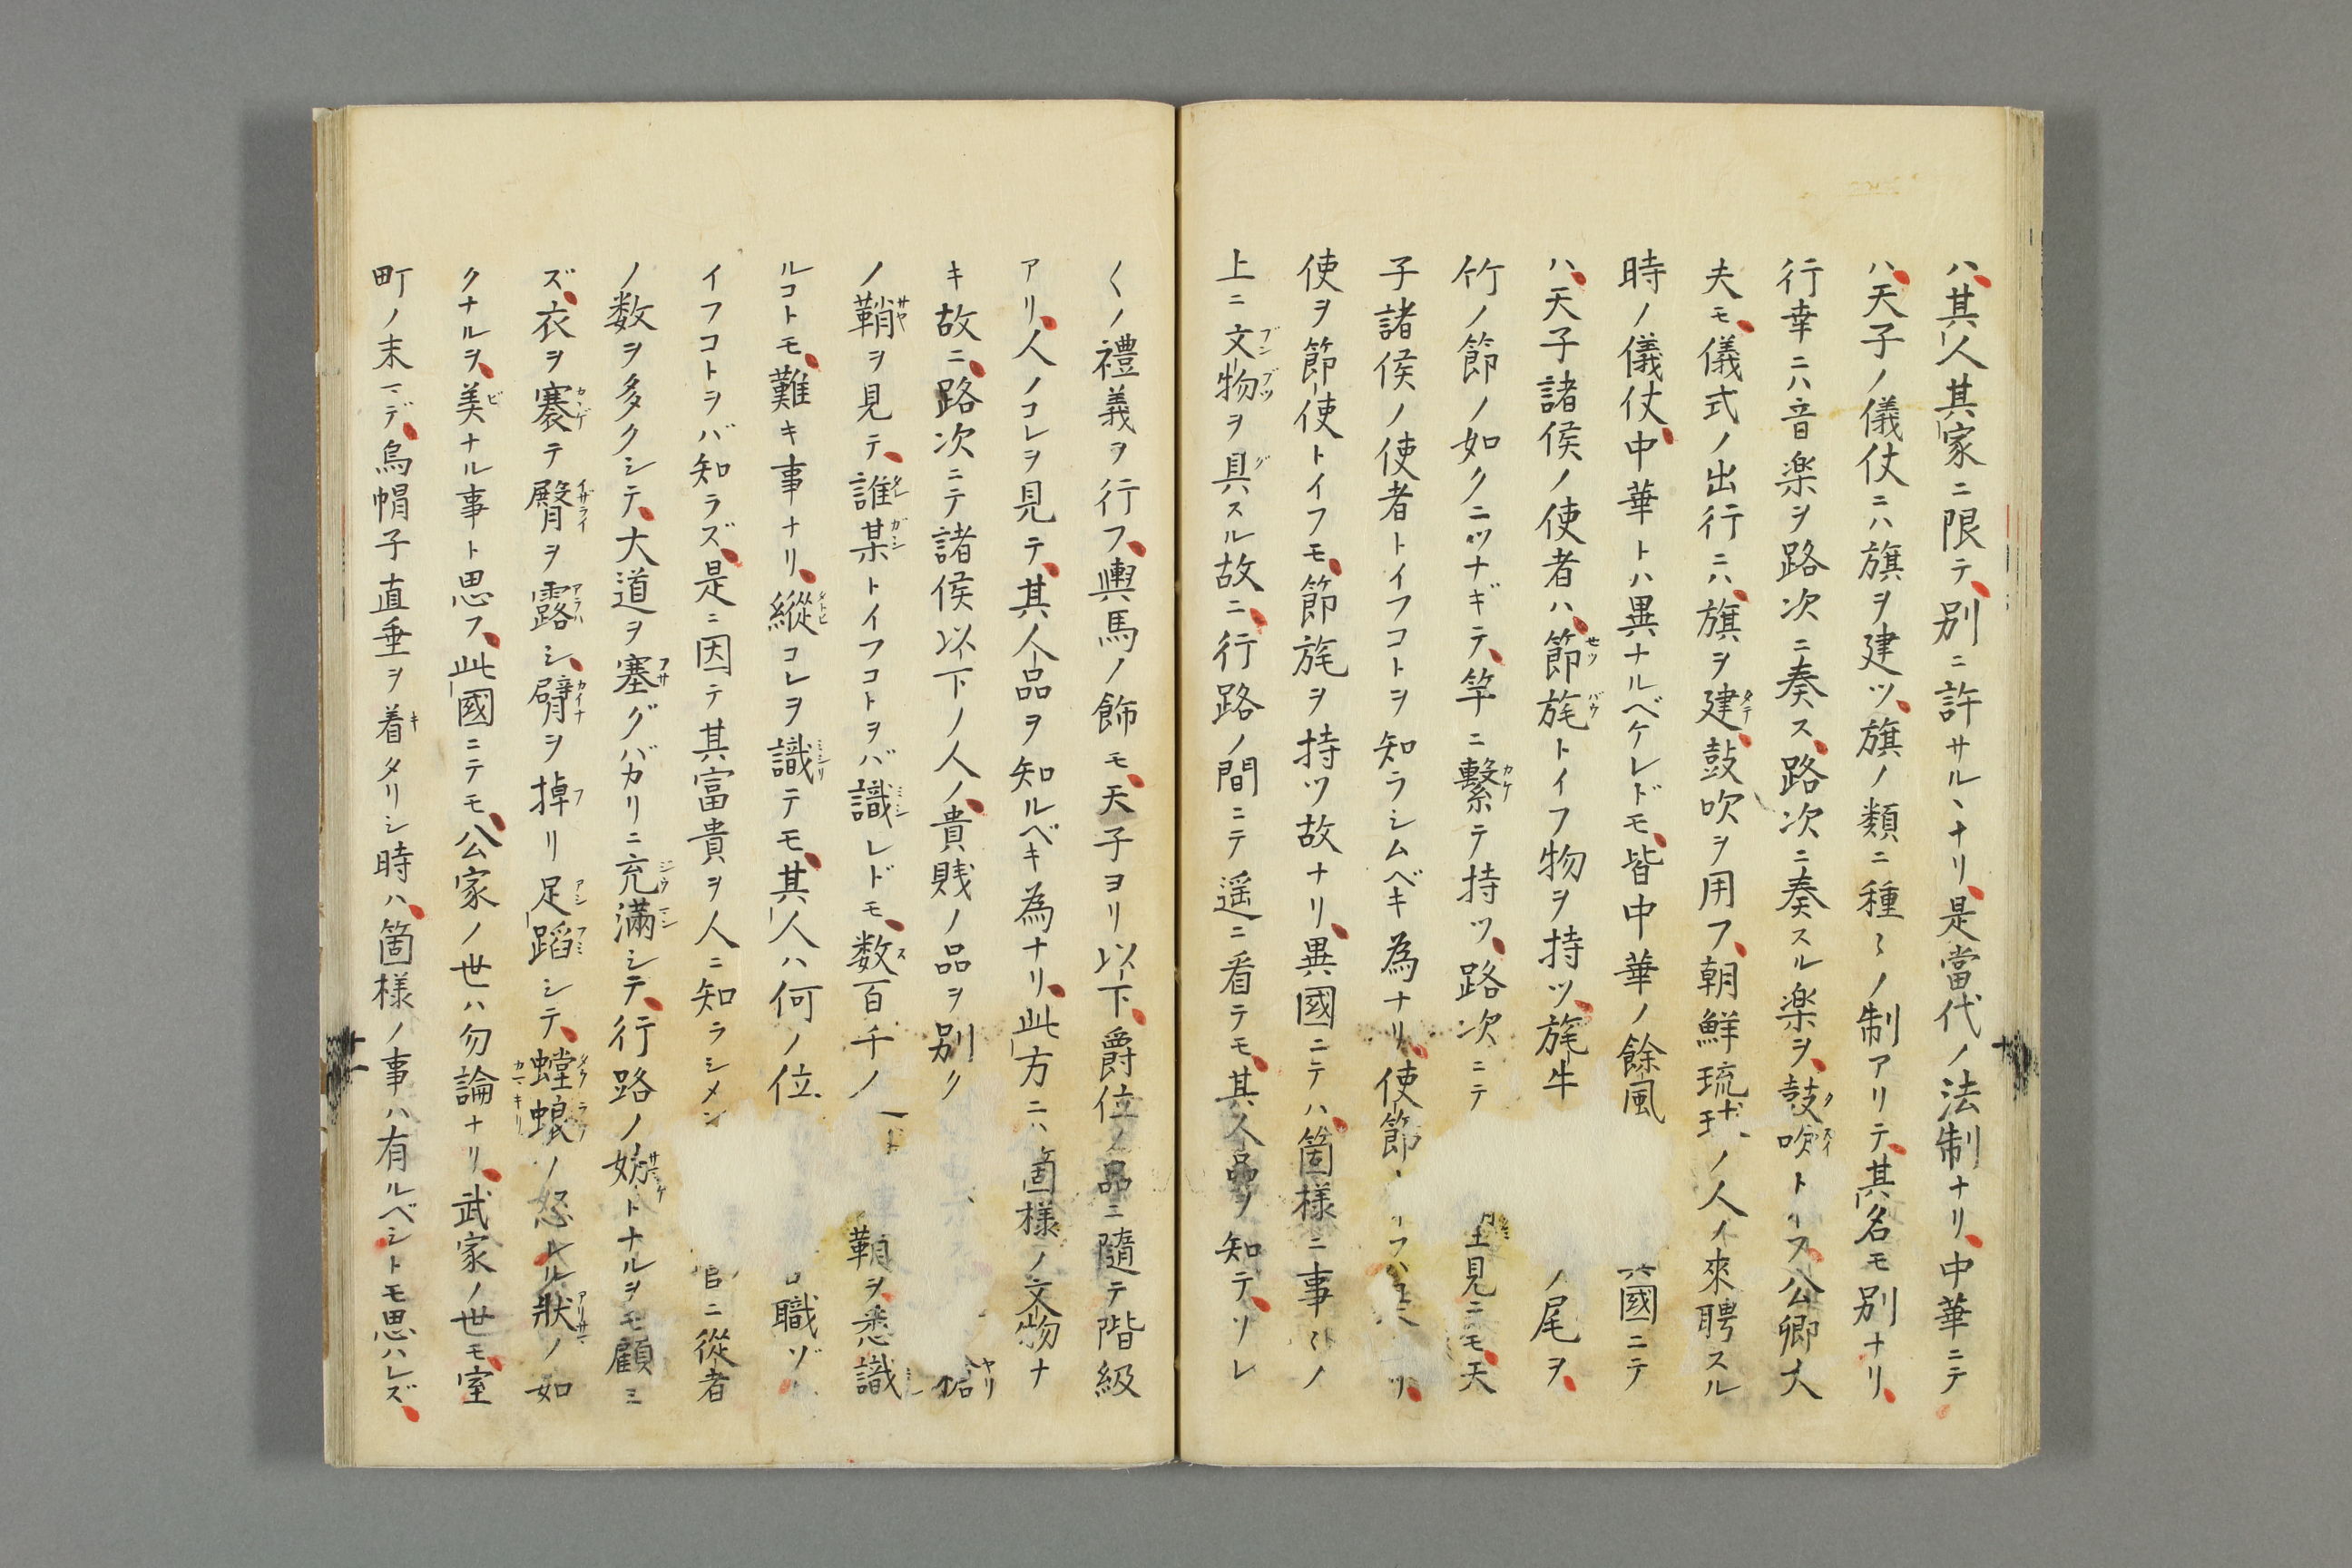 ハ其人其家ニ限テ別ニ許サルヽナリ是當代ノ法制ナリ中華ニテ
ハ天子ノ儀仗ニハ旗ヲ建ツ旗ノ類ニ種〻ノ制アリテ其名モ別ナリ
行幸ニハ音楽ヲ路次ニ奏ス路次ニ奏スル楽ヲ鼓吹トイフ公卿大
夫モ儀式ノ出行ニハ旗ヲ建鼓吹ヲ用フ朝鮮琉球ノ人ノ來聘スル
時ノ儀仗中華トハ異ナルベケレドモ皆中華ノ餘風 國ニテ
ハ天子諸侯ノ使者ハ節旄トイフ物ヲ持ツ旄牛 ノ尾ヲ
竹ノ節ノ如クニツナギテ竿ニ繋テ持ツ路次ニテ 見ニモ天
子諸侯ノ使者トイフコトヲ知ラシムベキ為ナリ使節 フハ
使ヲ節使トイフモ節旄ヲ持ツ故ナリ異國ニテハ箇様ニ事〻ノ
上ニ文物ヲ具スル故ニ行路ノ間ニテ遥ニ看テモ其人品ヲ知テソレ
〱ノ禮義ヲ行フ輿馬ノ飾モ天子ヨリ以下爵位ノ品ニ隨テ階級
アリ人ノコレヲ見テ其人品ヲ知ルベキ為ナリ此方ニハ箇様ノ文物ナ
キ故ニ路次ニテ諸侯以下ノ人ノ貴賎ノ品ヲ別ク
ノ鞘ヲ見テ誰某トイフコトヲバ識レドモ数百千ノ 鞘ヲ悉識
ルコトモ難キ事ナリ縱コレヲ識テモ其人ハ何ノ位 職ゾ
イフコトヲバ知ラズ是ニ因テ其富貴ヲ人ニ知ラシメン ニ從者
ノ数ヲ多クシテ大道ヲ塞グバカリニ充滿シテ行路ノ妨トナルヲモ顧ミ
ズ衣ヲ褰テ臀ヲ露シ臂ヲ掉リ足蹈シテ螳蜋ノ怒レル狀ノ如
クナルヲ美ナル事ト思フ此國ニテモ公家ノ世ハ勿論ナリ武家ノ世モ室
町ノ末マデ烏帽子直垂ヲ着タリシ時ハ箇様ノ事ハ有ルベシトモ思ハレズ